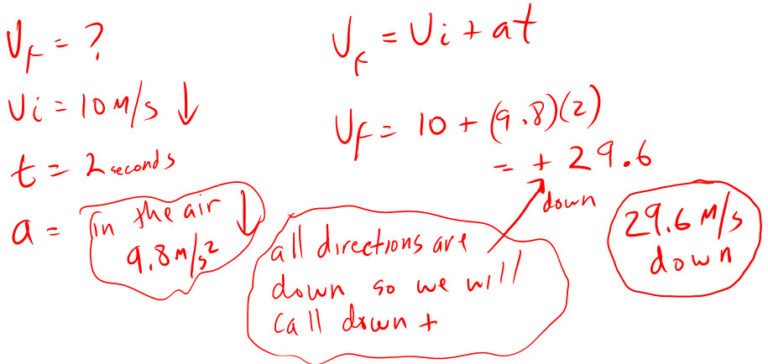 Vf = ?
Vi = 10 m/s ↓
t = 2 seconds
a = in the air ↓
9.8 m/s²
Vf = Vi + at
Vf = 10 + (9.8)(2)
= + 29.6
down
all directions are
down so we will
call down +
29.6 m/s
down